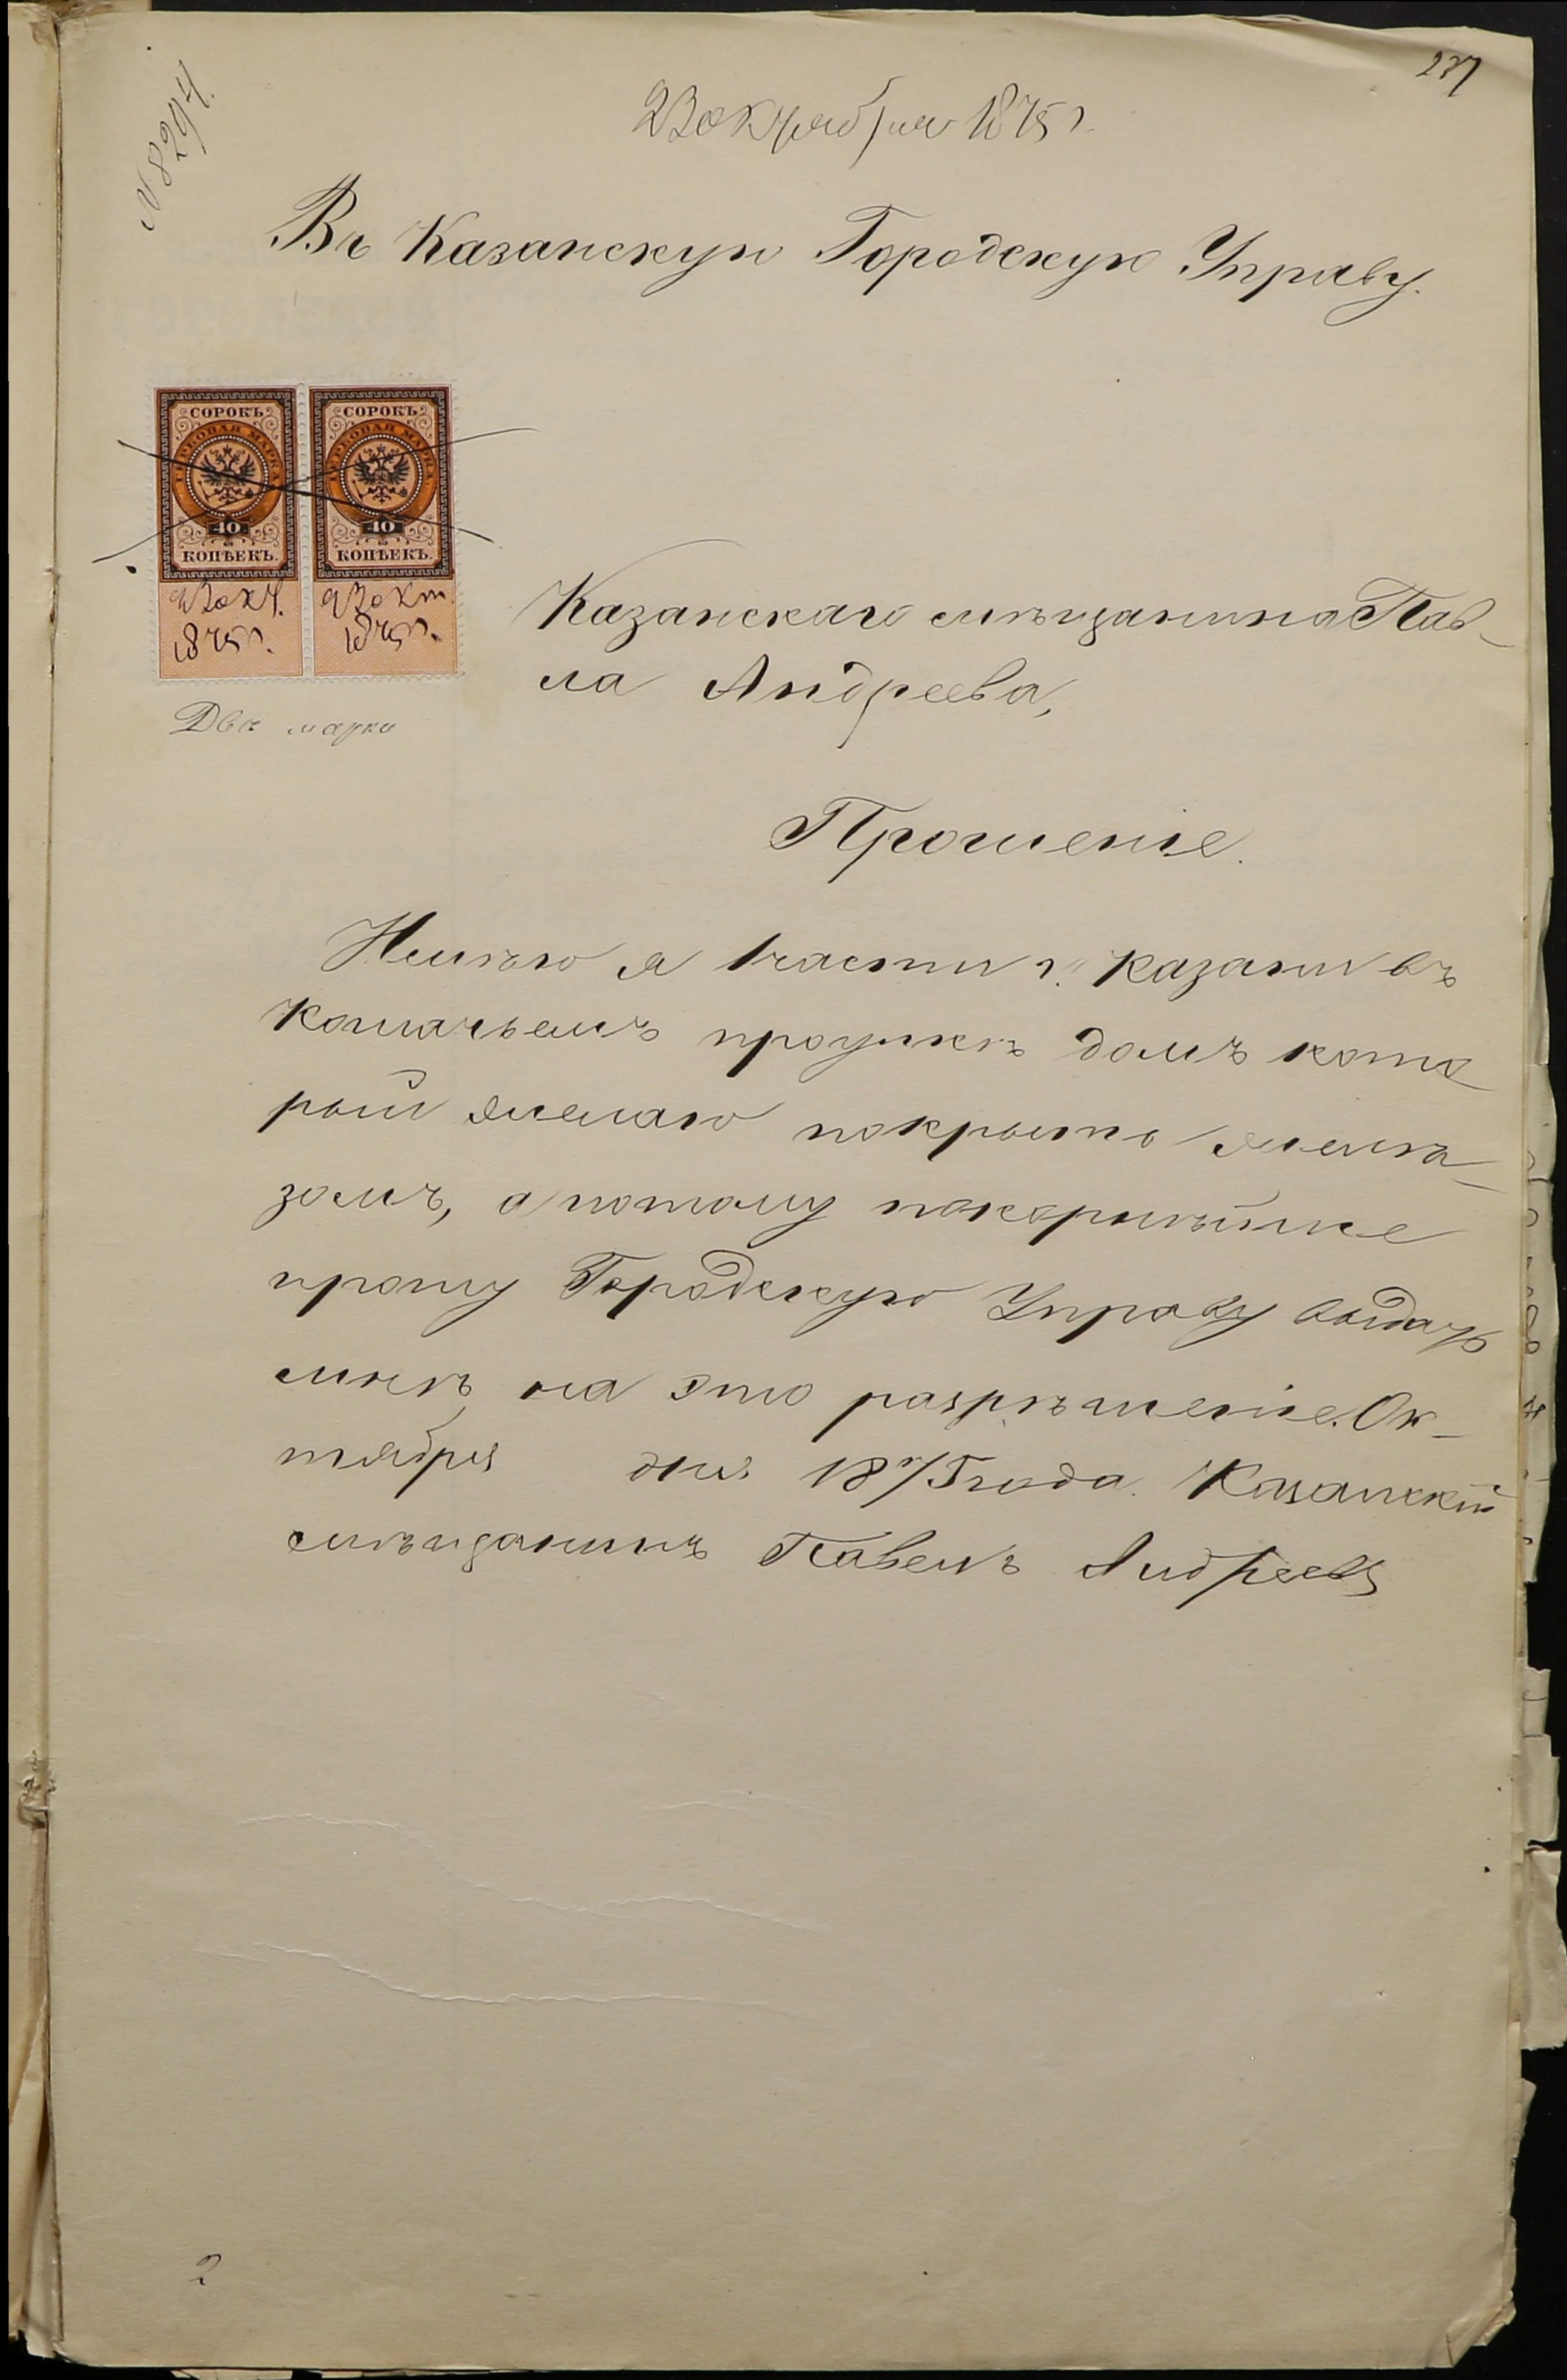 237
N 8294.
23 октября 1875 г.
Въ Казанскую Городскую Управу.
СОРОКЪ
ГЕРБОВАЯ МАРКА
40
КОПѢЕКЪ.
23 окт.
1875 г.
СОРОКЪ
ГЕРБОВАЯ МАРКА
40
КОПѢЕКЪ.
23 окт.
1875 г.
Двѣ марки
Казанскаго мѣщанина Пав-
ла Андреева,
Прошеніе.
Имѣю я 1 части г. Казани въ
Кошачьемъ проулкѣ домъ кото
рый желаю покрыть желѣ-
зомъ, а потому покорнѣйше
прошу Городскую Управу выдать
мнѣ на это разрѣшеніе. Ок-
тября дня 1875 года. Казанскій
мѣщанинъ Павелъ Андреевъ
2